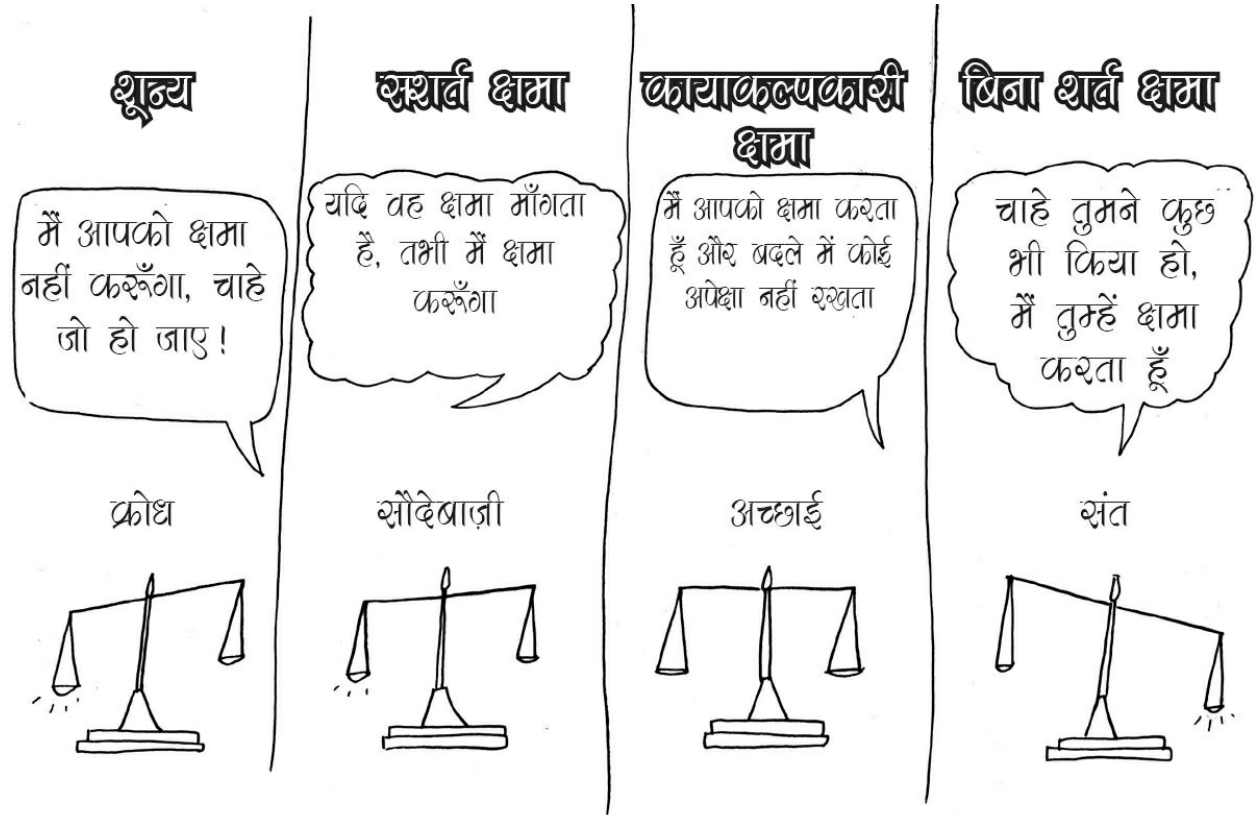 शून्य
मैं आपको क्षमा
नहीं करूँगा, चाहे
जो हो जाए!
क्रोध
सशर्त क्षमा
यदि वह क्षमा माँगता
है, तभी मैं क्षमा
करूँगा
सौदेबाज़ी
कायाकल्पकारी
क्षमा
मैं आपको क्षमा करता
हूँ और बदले में कोई
अपेक्षा नहीं रखता
अच्छाई
बिना शर्त क्षमा
चाहे तुमने कुछ
भी किया हो,
मैं तुम्हें क्षमा
करता हूँ
संत